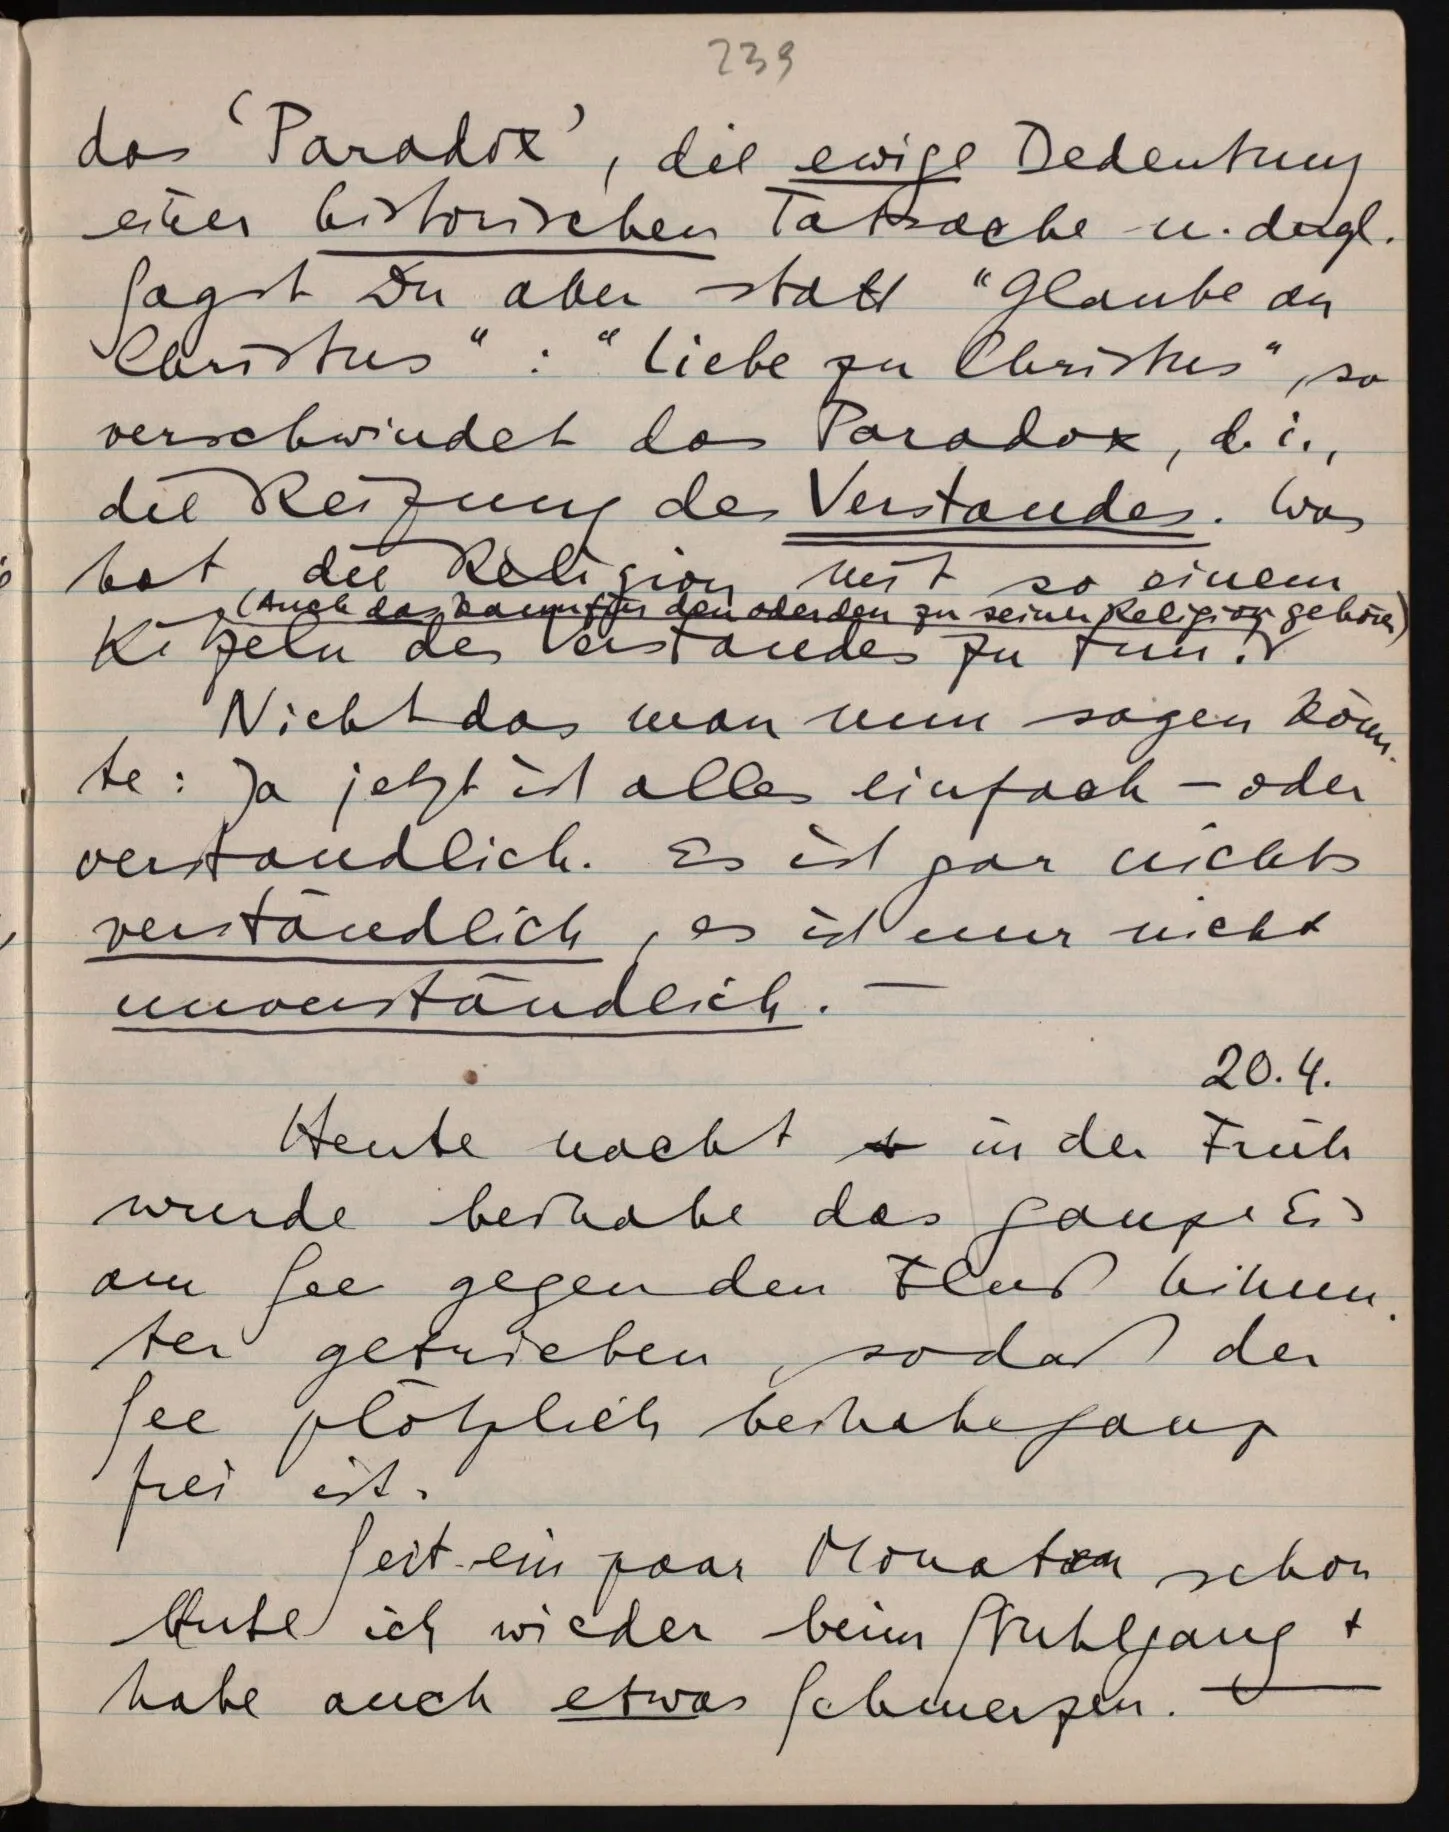 239
das 'Paradox', die ewige Bedeutung
einer historischen Tatsache u. dergl.
Sagst Du aber statt "Glaube an
Christus" : "Liebe zu Christus", so
verschwindet das Paradox, d. i.,
die Reizung des Verstandes. Was
hat die Religion mit so einem
(Auch das kann für den oder den zu seiner Religion gehören)
Kitzeln des Verstandes zu tun?
Nicht das man nun sagen könn-
te: Ja jetzt ist alles einfach – oder
verstandlich. Es ist gar nichts
verständlich, es ist nur nicht
unverständlich. —
20.4.
Heute nacht + in der Früh
wurde beinahe das ganze Eis
am See gegen den Fluß hinun-
ter getrieben, sodaß der
See plötzlich beinahe ganz
frei ist.
Seit ein paar Monaten schon
blute ich wieder beim Stuhlgang +
habe auch etwas Schmerzen.